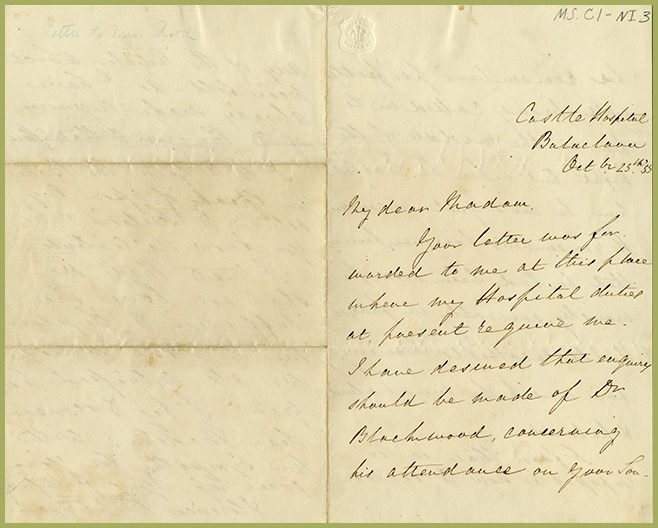 MS. C1-NI3
Letter to Mrs.
Castle Hospital
Balaclava
Octbr 25th 55
My dear Madam.
Your letter was for
warded to me at this place
where my Hospital duties
at present require me.
I have desired that enquiry
should be made of Dr
Blackwood, concerning
his attendance on your Son-